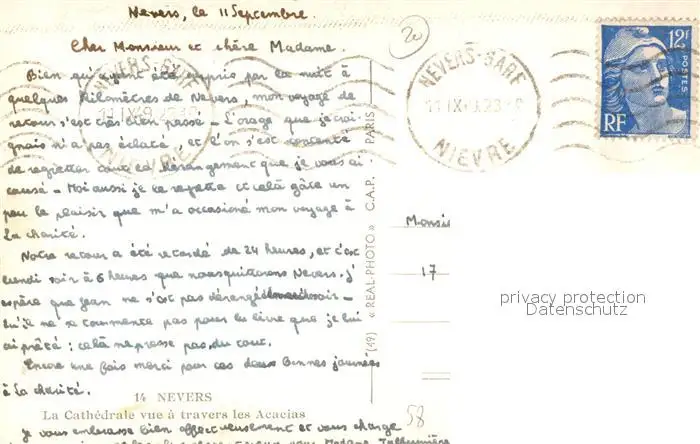 Nevers, le 11 Septembre.
Cher Monsieur et chère Madame.
Bien qu'ayant été surpris par la nuit à
quelques kilomètres de Nevers, mon voyage de
retour s'est très bien passé - L'orage que je crai-
gnais n'a pas éclaté, et l'on s'est contenté
de regretter tout le dérangement que je vous ai
causé - Moi aussi je le regrette et celà gâte un
peu le plaisir que m'a occasioné mon voyage à
La charité.
Notre retour a été retardé de 24 heures, et c'est
lundi soir à 6 heures que nous quitterons Nevers. J'
espère que Jean ne s'est pas dérangé
qu'il ne se tourmente pas pour le livre que je lui
ai prêté : celà ne presse pas du tout.
Encore une fois merci pour ces deux bonnes journées
à La charité.
14 NEVERS
La Cathédrale vue à travers les Acacias
je vous embrasse bien affectueusement et vous charge
vous Madame
58
(49) « REAL-PHOTO » C.A.P. - PARIS
20
NEVERS-GARE
NIEVRE
NEVERS-GARE
NIEVRE
12F
POSTES
RF
Monsie
17
privacy protection
Datenschutz